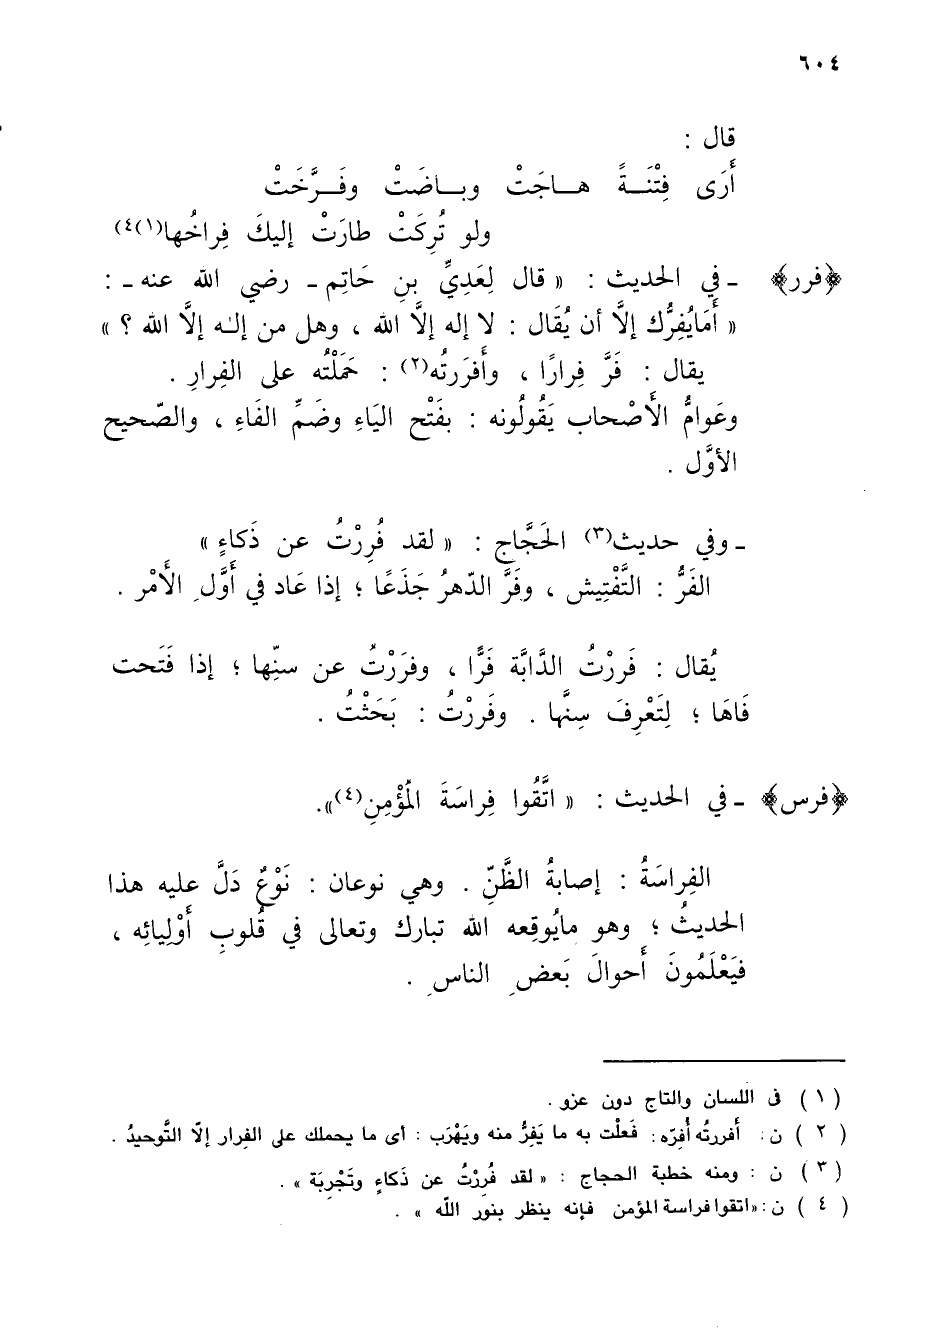 ٦٠٤
قال :
أَرَى فِتْنَــةً هــاجَتْ وبــاضَتْ وفَــرَّخَتْ
ولو تُرِكَتْ طارَتْ إليكَ فِراخُها(١)(٤)
﴿فرر﴾ ـ في الحديث : « قال لِعَدِيِّ بنِ حَاتِم ـ رضي الله عنه ـ :
« أَمَايُفِرُّك إلَّا أن يُقَال : لا إله إلَّا الله ، وهل من إلـٰه إلَّا الله ؟ »
يقال : فَرَّ فِرارًا ، وأَفرَرتُه(٢) : حَمَلْتُه على الفِرارِ .
وعَوامُّ الأَصْحاب يَقُولُونه : بفَتْح اليَاءِ وضَمِّ الفَاءِ ، والصّحيح
الأوَّل .
ـ وفي حديث(٣) الحَجَّاج : « لقد فُرِرْتُ عن ذَكاءٍ »
الفَرُّ : التَّفْتِيش ، وفَرَّ الدّهرُ جَذَعًا ؛ إذا عَاد في أَوَّلِ الأَمْر .
يُقال : فَررْتُ الدَّابَّة فَرًّا ، وفرَرْتُ عن سنّها ؛ إذا فَتَحت
فَاهَا ؛ لِتَعْرِفَ سِنَّها . وفَررْتُ : بَحَثْتُ .
﴿فرس﴾ ـ في الحديث : « اتَّقُوا فِراسَةَ المُؤْمِنِ(٤)».
الفِراسَةُ : إصابةُ الظَّنِّ . وهي نوعان : نَوْعٌ دَلَّ عليه هذا
الحديثُ ؛ وهو مايُوقِعه الله تبارك وتعالى في قُلوبِ أَوْلِيائِه ،
فيَعْلَمُونَ أحوالَ بَعضِ الناسِ .
( ١ ) فى اللسان والتاج دون عزو .
( ٢ ) ن : أَفررتُه أُفِرّه : فَعَلْت به ما يَفِرُّ منه ويَهْرَب : أى ما يحملك على الفِرار إلّا التَّوحيدُ .
( ٣ ) ن : ومنه خطبة الحجاج : « لقد فُرِرْتُ عن ذَكاءٍ وتَجْرِبَة » .
( ٤ ) ن : «اتقوا فراسة المؤمن فإنه ينظر بنور الله » .